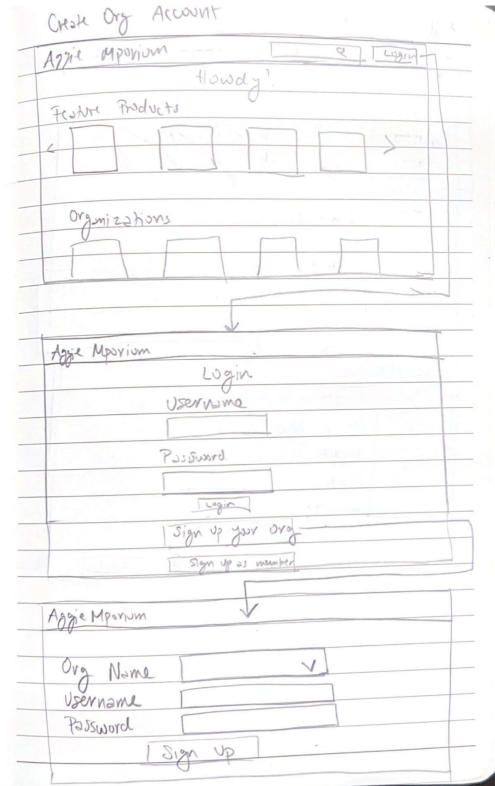 Create Org Account
Aggie Mporium Login
Howdy!
Feature Products
Organizations
Aggie Mporium
Login
Username
Password
Login
Sign up your org
Sign up as member
Aggie Mporium
Org Name
Username
Password
Sign up